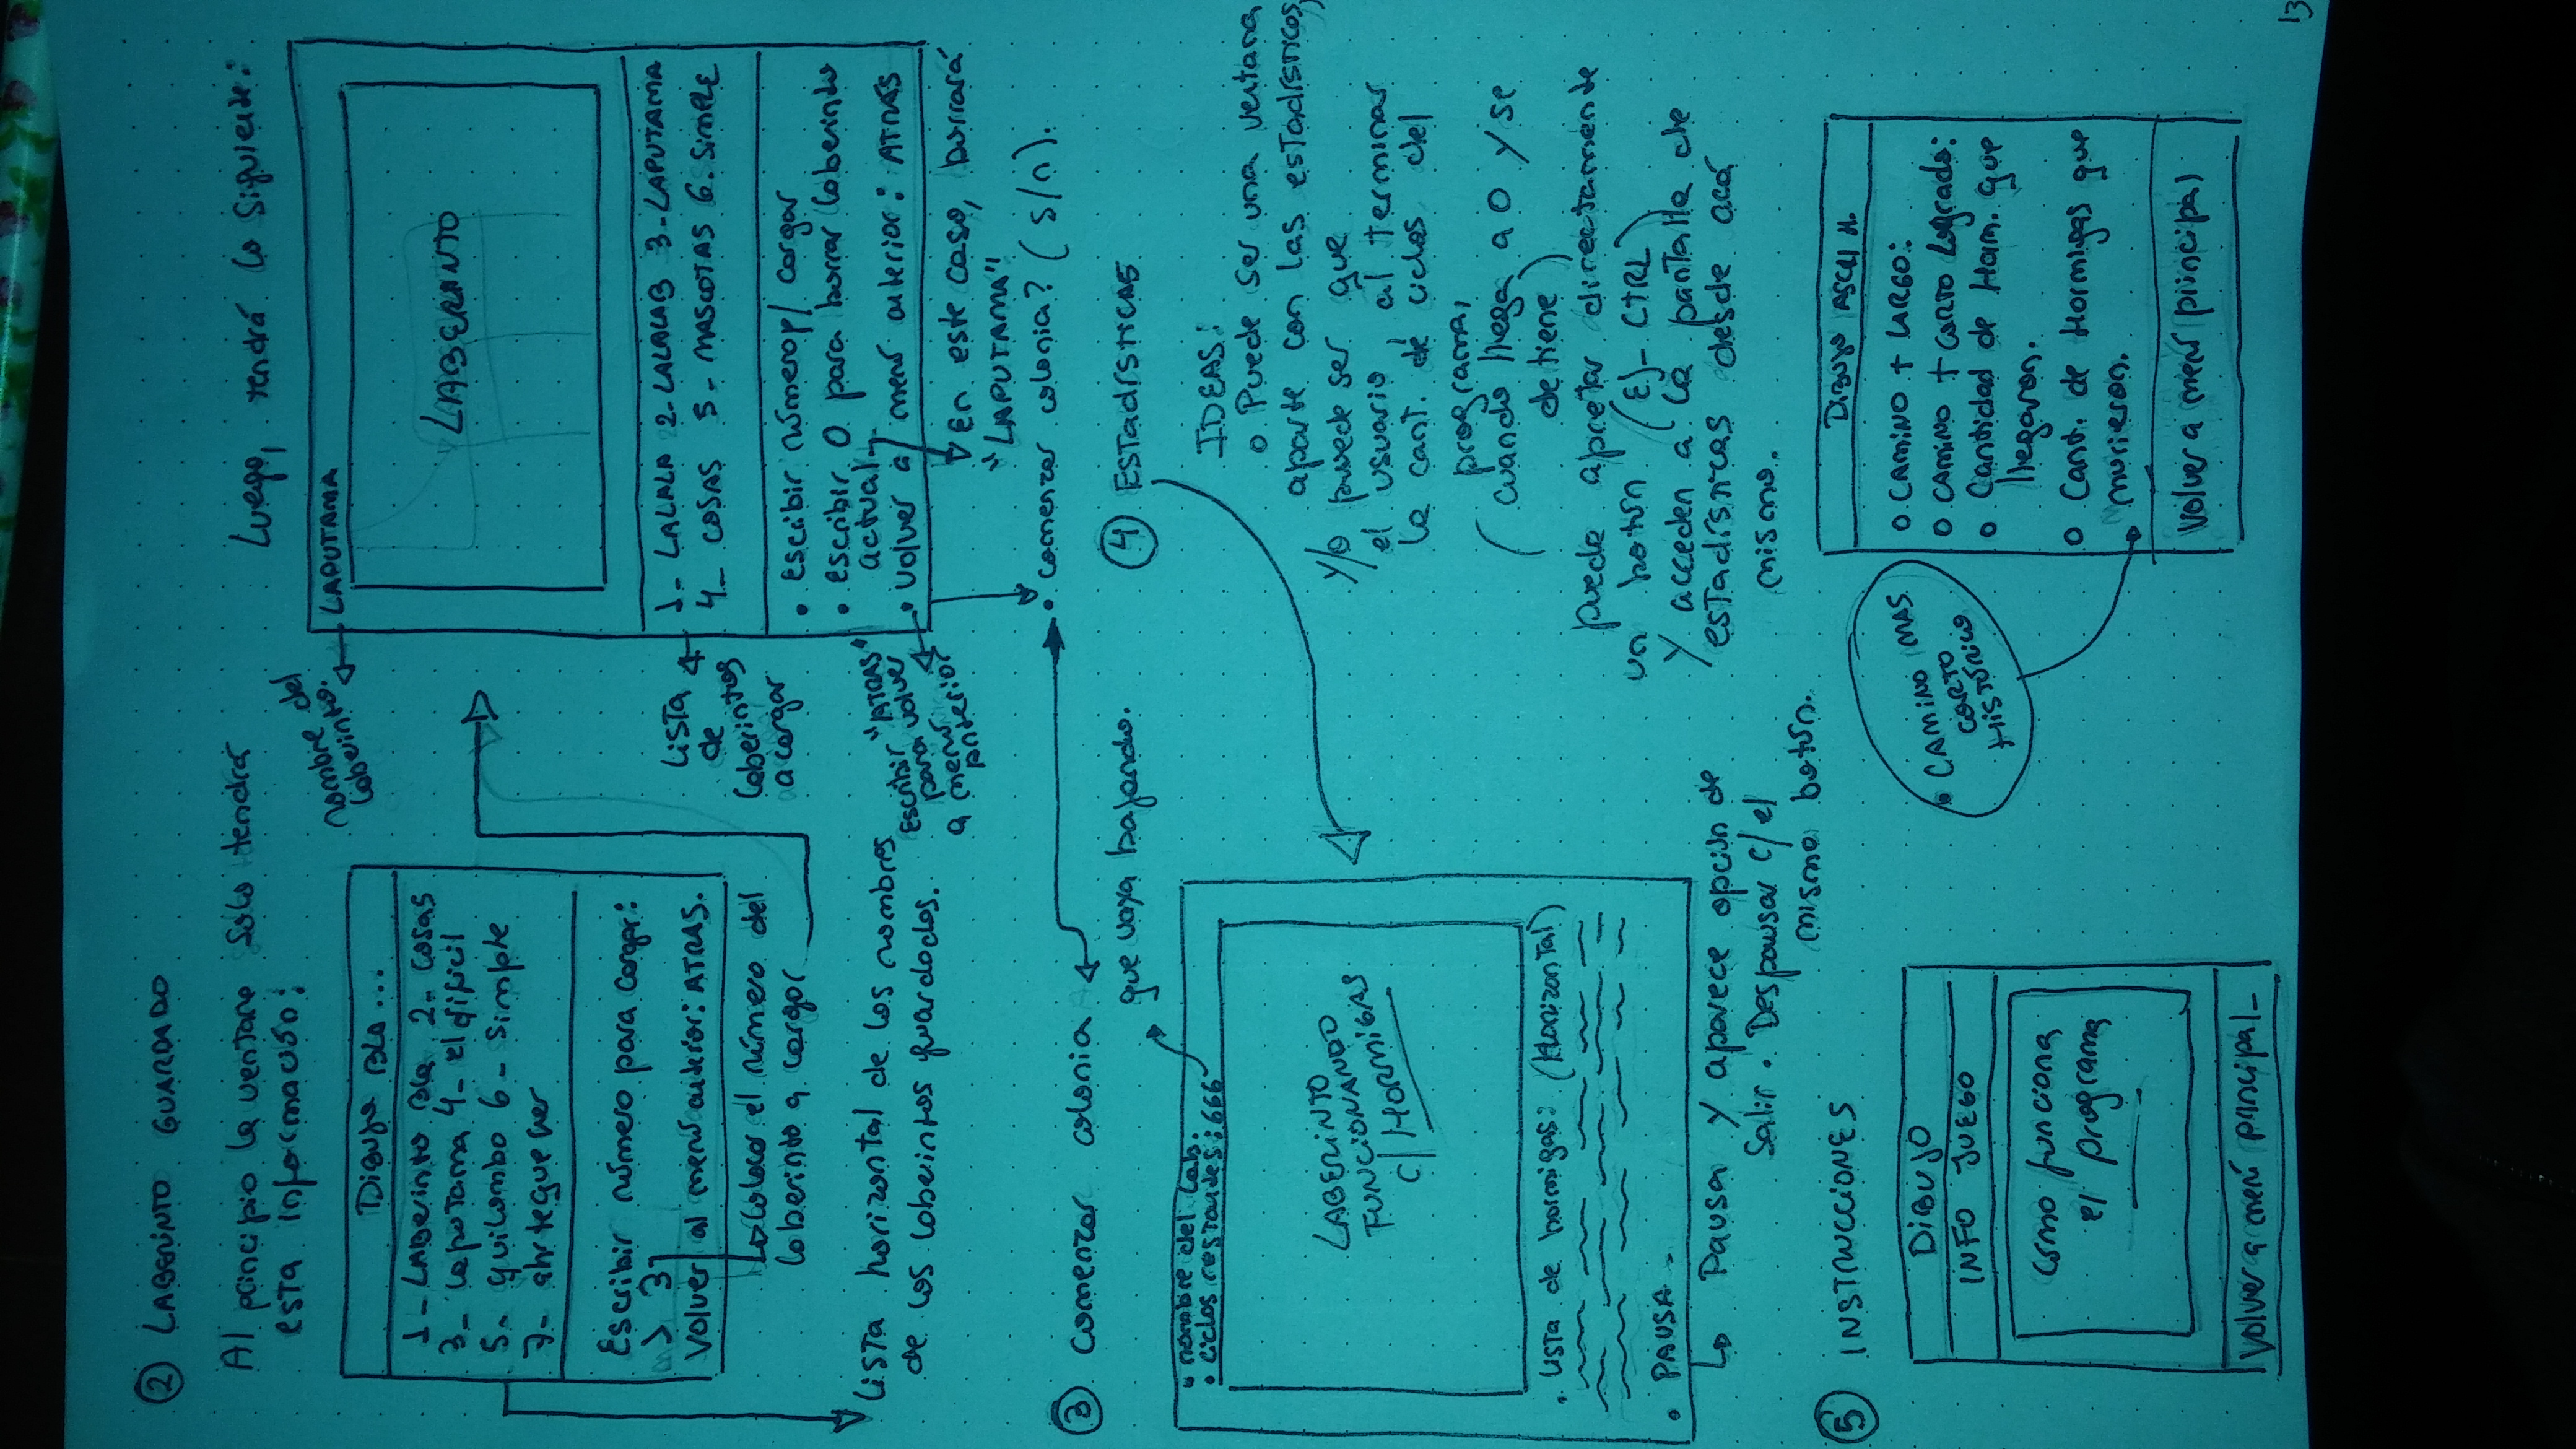 ② LABERINTO GUARDADO
Al principio la ventana solo tendrá
esta información:
Dibujo BLA ...
1- LABerinto Bla 2- COSAS
3- laputama 4- el dificil
5- quilombo 6- simple
7- ahrteguever
Escribir número para cargar:
> 3
Volver al menú anterior: ATRAS.
Coloco el número del
laberinto a cargar
Lista horizontal de los nombres
de los laberintos guardados.
Luego, tendrá lo siguiente:
nombre del
laberinto.
LAPUTAMA
LABERINTO
Lista
de
laberintos
a cargar
1- LALALA 2- LALALAB 3- LAPUTAMA
4- COSAS 5- MASCOTAS 6. SIMPLE
• escribir número p/ cargar
• escribir 0 para borrar laberinto
actual
• volver a menú anterior: ATRÁS
Escribir "ATRAS"
para volver
a menú
anterior
En este caso, borrará
"LAPUTAMA"
• comenzar colonia? (s/n).
③ comenzar colonia
que vaya bajando.
• nombre del Lab.
• ciclos restantes: 666
LABERINTO
FUNCIONANDO
c/ HORMIGAS
• Lista de hormigas: (Horizontal)
• PAUSA -
Pausa y aparece opción de
salir. Despausar c/ el
mismo botón.
④ ESTADÍSTICAS
IDEAS:
o Puede ser una ventana
aparte con las estadísticas,
y/o puede ser que
el usuario, al terminar
la cant. de ciclos del
programa,
(cuando llega a 0 y se
detiene)
puede apretar directamente
un botón (Ej- CTRL)
y acceden a la pantalla de
estadísticas desde acá
mismo.
⑤ INSTRUCCIONES
DIBUJO
INFO JUEGO
cómo funciona
el programa
Volver a menú principal-
• CAMINO MAS
CORTO
HISTÓRICO
Dibujo ASCII H.
o CAMINO + LARGO:
o CAMINO + CORTO Logrado:
o Cantidad de Horm. que
llegaron.
o Cant. de Hormigas que
murieron.
Volver a menú principal
13